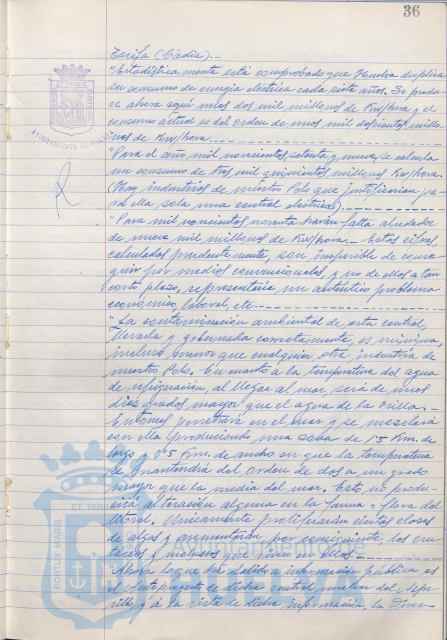 36
Tarifa (Cádiz).-
"Estadísticamente está comprobado que Huelva duplica
su consumo de energía eléctrica cada siete años. Se produ-
ce ahora aquí unos dos mil millones de Kw/hora y el
consumo actual es del orden de unos mil doscientos millo-
nes de Kw/hora.
"Para el año mil novecientos setenta y nueve, se calcula
un consumo de tres mil quinientos millones Kw/hora.
(Hay industrias de nuestro Polo que justifican ya
por ella sola una central eléctrica)
"Para mil novecientos noventa harán falta alrededor
de nueve mil millones de Kw/hora.- Estas cifras
calculadas prudentemente, son imposible de conse-
guir por medios convencionales, y no de ellos a tan
corto plazo, representaría un auténtico problema
económico, laboral, etc.
"La contaminación ambiental de esta central,
llevada y gobernada correctamente, es mínima,
incluso menos que cualquier otra industria de
nuestro Polo. En cuanto a la temperatura del agua
de refrigeración, al llegar al mar, será de unos
diez grados mayor que el agua de la orilla.-
Entonces penetrará en el mar y se mezclará
con ella produciendo una zona de 1'5 Km. de
largo y 0'5 Km. de ancho en que la temperatura
se mantendrá del orden de dos a un grado
mayor que la media del mar. Esto no produ-
cirá alteración alguna en la fauna o flora del
litoral. Unicamente proliferarán ciertas clases
de algas y aumentarán por consiguiente, los crus-
táceos y moluscos que viven en ellos.-
"Ahora lo que ha salido a información pública es
el Anteproyecto de dicha central nuclear del Aspe-
rillo, y a la vista de dicha información, la Direc-
AYUNTAMIENTO DE HUELVA
PORTUS MARIS
ET TERRAE
Ayuntamiento de
HUELVA